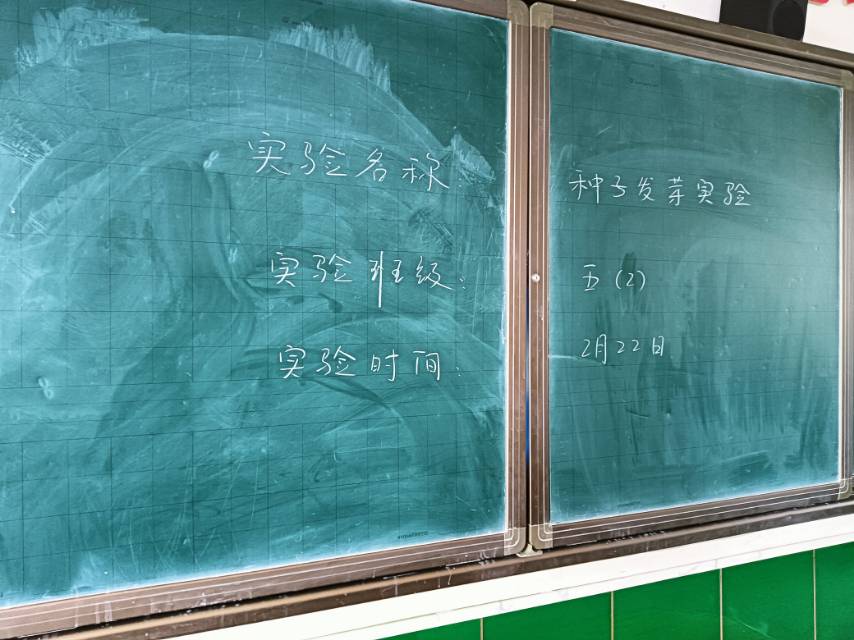 实验名称： 种子发芽实验
实验班级： 五（2）
实验时间： 2月22日